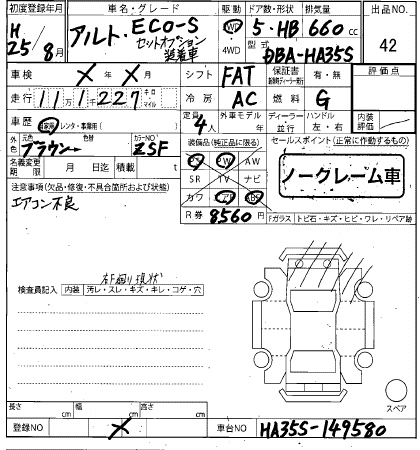 初度登録年月 車名・グレード 駆動 ドア数・形状 排気量 出品NO.
H 25/8月 アルト・ECO-S 2WD 5・HB 660 cc 42
セットオプション
装着車
4WD 型式 DBA-HA35S
車検 X 年 X 月 シフト FAT 保証書 有・無 評価点
走行 11万1千227 キロ マイル 冷房 AC 燃料 G
車歴 自家用・レンタ・事業用( ) 定員 4人 外車モデル 年 ディーラー 並行 ハンドル 左・右 内装評価
外色 ブラウン 色替 カラーNO ZSF 装備品(純正品に限る) セールスポイント(正常に作動するもの)
名義変更期限 月 日迄 積載 t PS PW AW ノークレーム車
SR TV ナビ
注意事項(欠品・修復・不具合箇所および状態) カワ エアB ABS
エアコン不良 R券 8560円 Fガラス トビ石・キズ・ヒビ・ワレ・リペア跡
現状
検査員記入 内装 汚レ・スレ・キズ・キレ・コゲ・穴
スペア
長さ cm 幅 cm 高さ cm
登録NO X 車台NO HA35S-149580